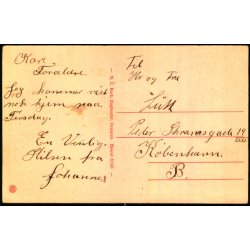 Kære
Forældre.
Jeg kommer vist
nok hjem paa
Tirsdag.
En Venlig
Hilsen fra
Johannes
Til
Hr og Fru
Lütk
Peder Skramsgade 19
København.
B.